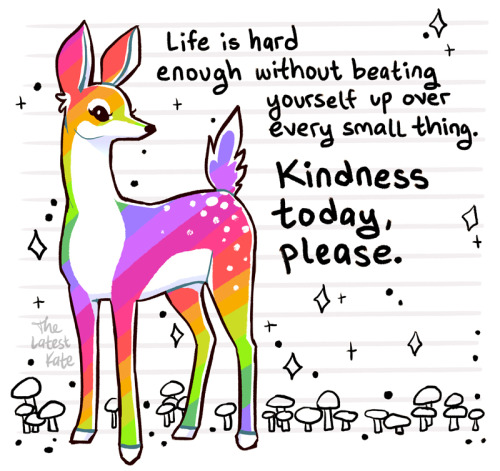 Life is hard
enough without beating
yourself up over
every small thing.
Kindness
today,
please.
The
Latest
Kate